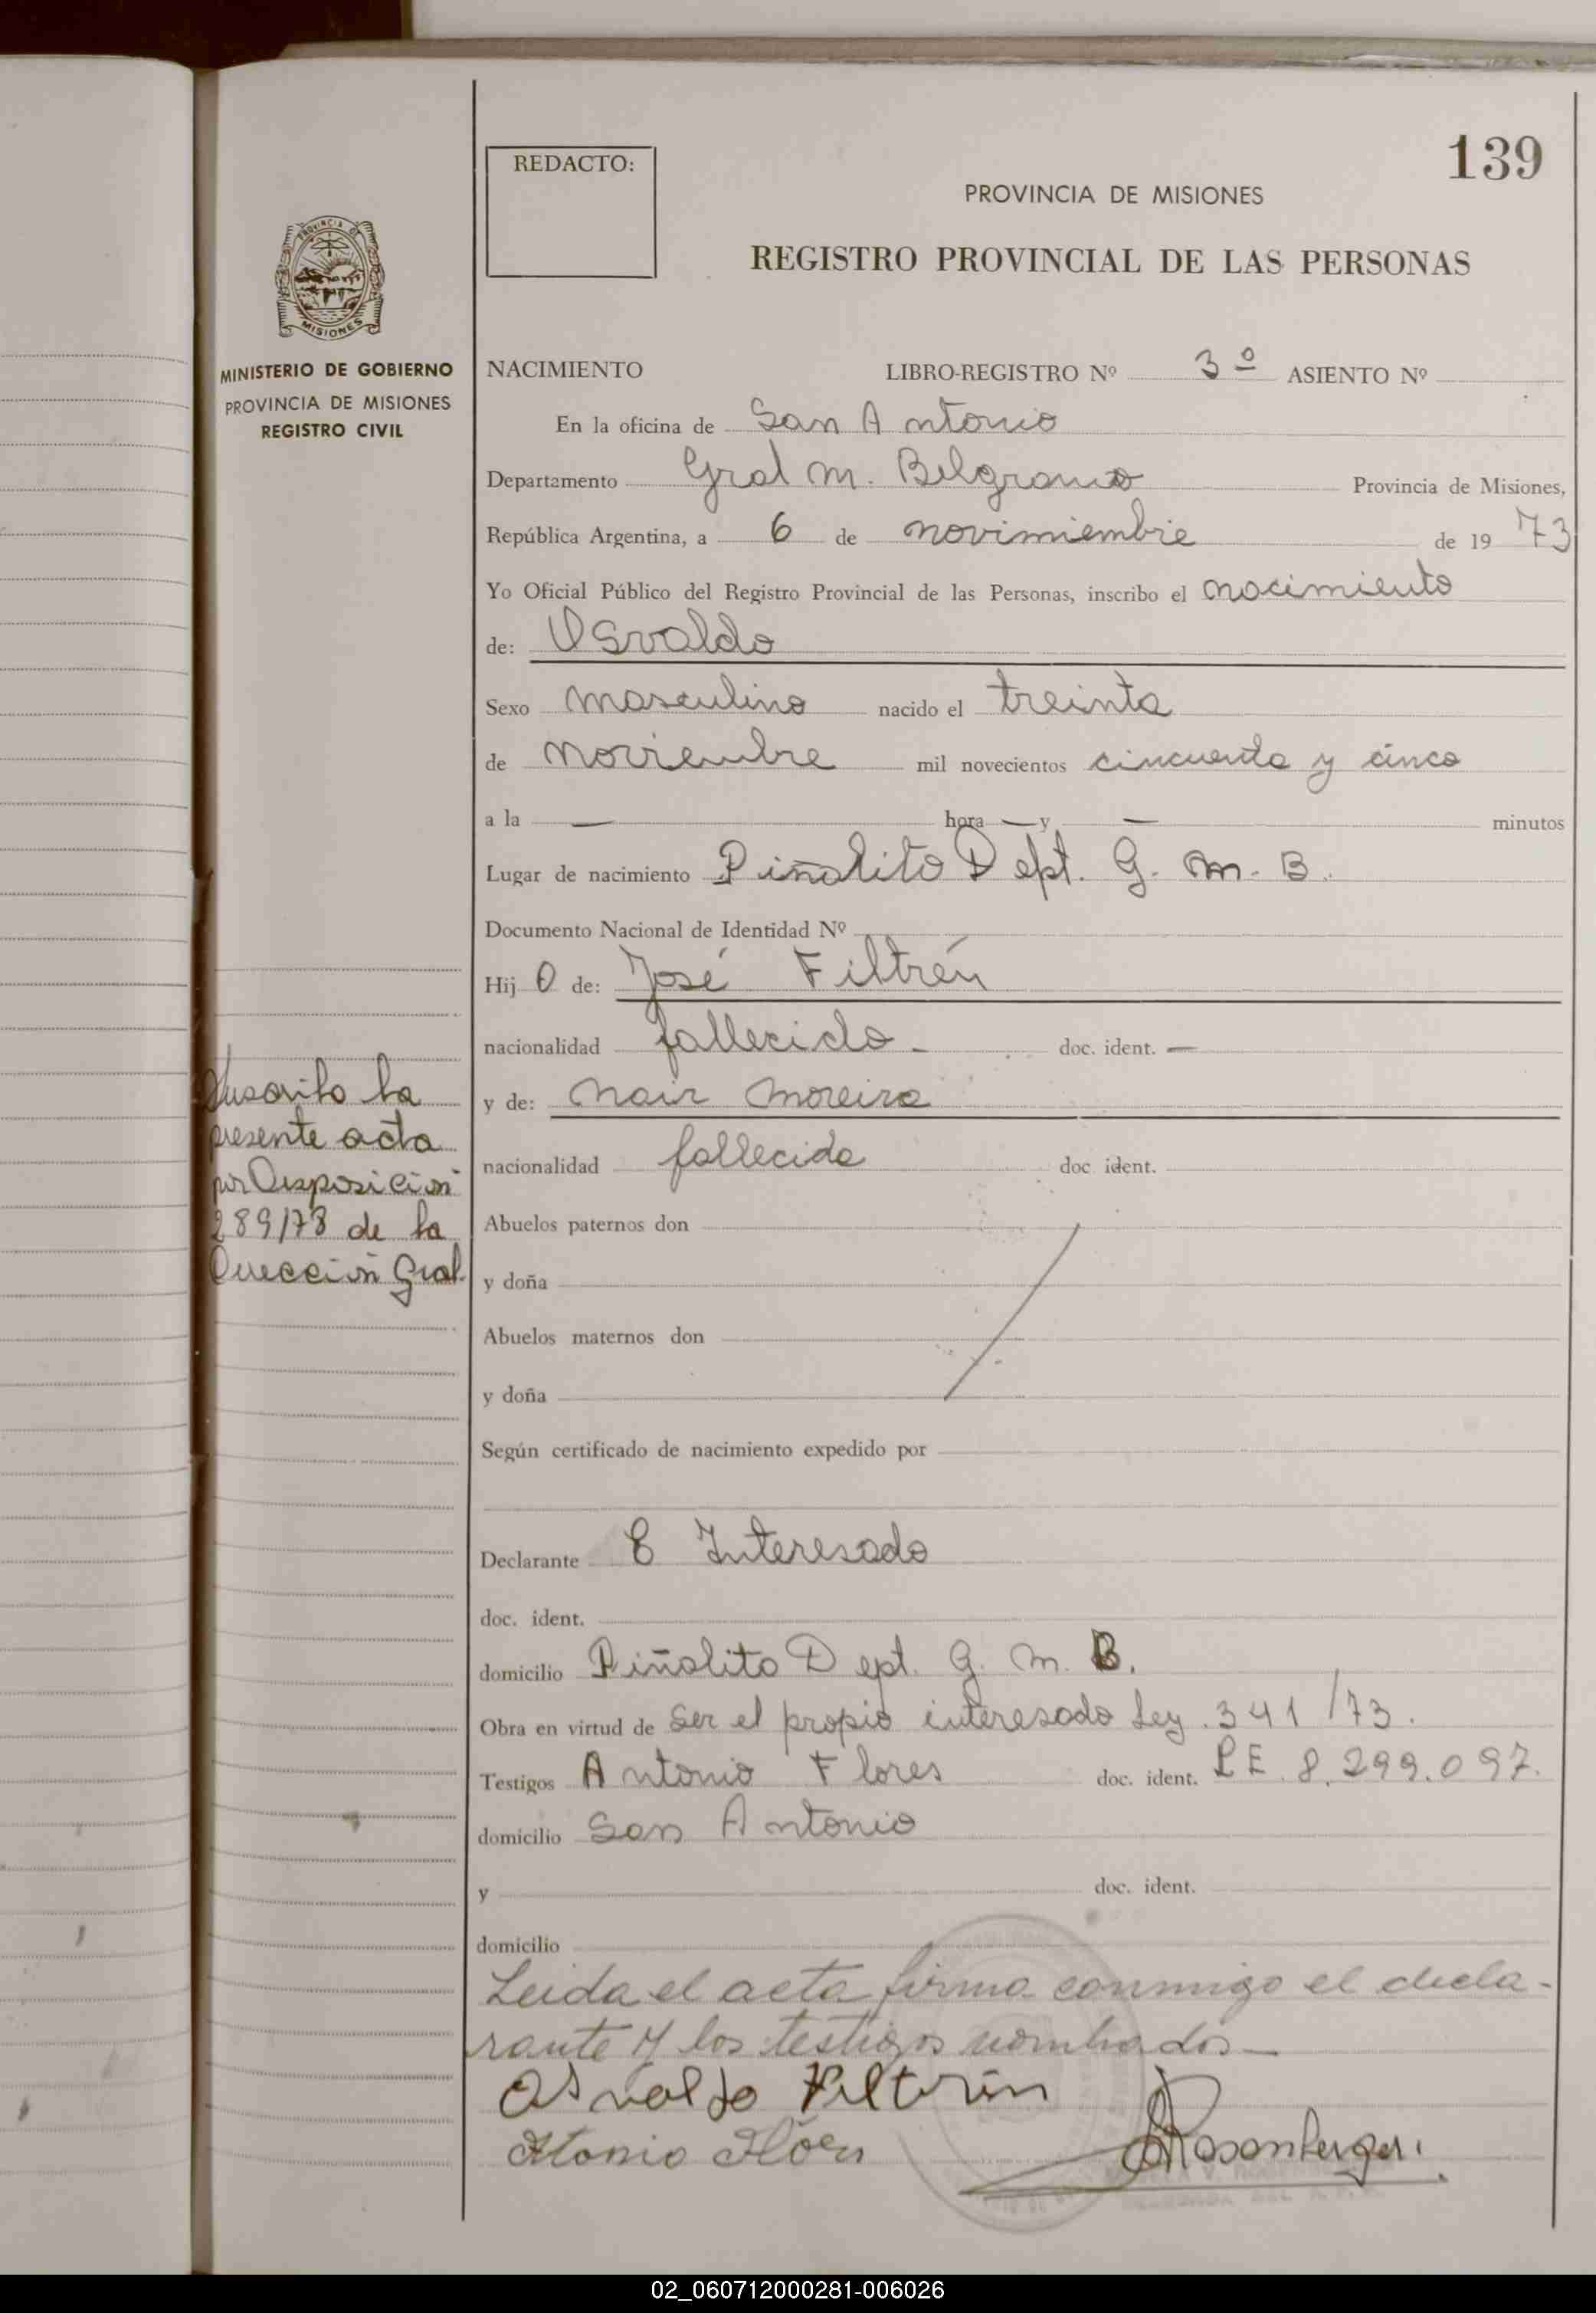 139
REDACTO:
PROVINCIA DE MISIONES
REGISTRO PROVINCIAL DE LAS PERSONAS
PROVINCIA DE
MISIONES
MINISTERIO DE GOBIERNO
PROVINCIA DE MISIONES
REGISTRO CIVIL
NACIMIENTO LIBRO-REGISTRO Nº 3º ASIENTO Nº
En la oficina de San Antonio
Departamento Gral M. Belgrano Provincia de Misiones,
República Argentina, a 6 de novimiembre de 19 73
Yo Oficial Público del Registro Provincial de las Personas, inscribo el nacimiento
de: Osvaldo
Sexo masculino nacido el treinta
de noviembre mil novecientos cincuenta y cinco
a la — hora — y — minutos
Lugar de nacimiento Piñalito Dept. G. M. B.
Documento Nacional de Identidad Nº
Hij o de: José Filtrén
nacionalidad fallecido - doc. ident. —
y de: Nair Moreira
nacionalidad fallecida doc. ident.
Abuelos paternos don
y doña
Abuelos maternos don
y doña
Según certificado de nacimiento expedido por
Declarante E Interesado
doc. ident.
domicilio Piñalito Dept. G. M. B.
Obra en virtud de ser el propio interesado Ley. 341/73.
Testigos Antonio Flores doc. ident. LE. 8.299.097.
domicilio San Antonio
y doc. ident.
domicilio
Leida el acta firma conmigo el decla-
rante y los testigos nombrados—
Osvaldo Filtrin
Rosenberger.
la
presente acta
por Disposición
289/73 de la
Dirección Gral.
02_060712000281-006026